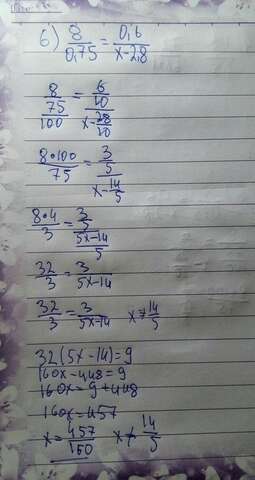 6) 8/0,75 = 0,6/x-2,8
8/75/100 = 6/10/x-28/10
8•100/75 = 3/5/x-14/5
8•4/3 = 3/5/5x-14/5
32/3 = 3/5x-14
32/3 = 3/5x-14 x≠14/5
32(5x-14)=9
160x-448=9
160x=9+448
160x=457
x=457/160 x≠14/5